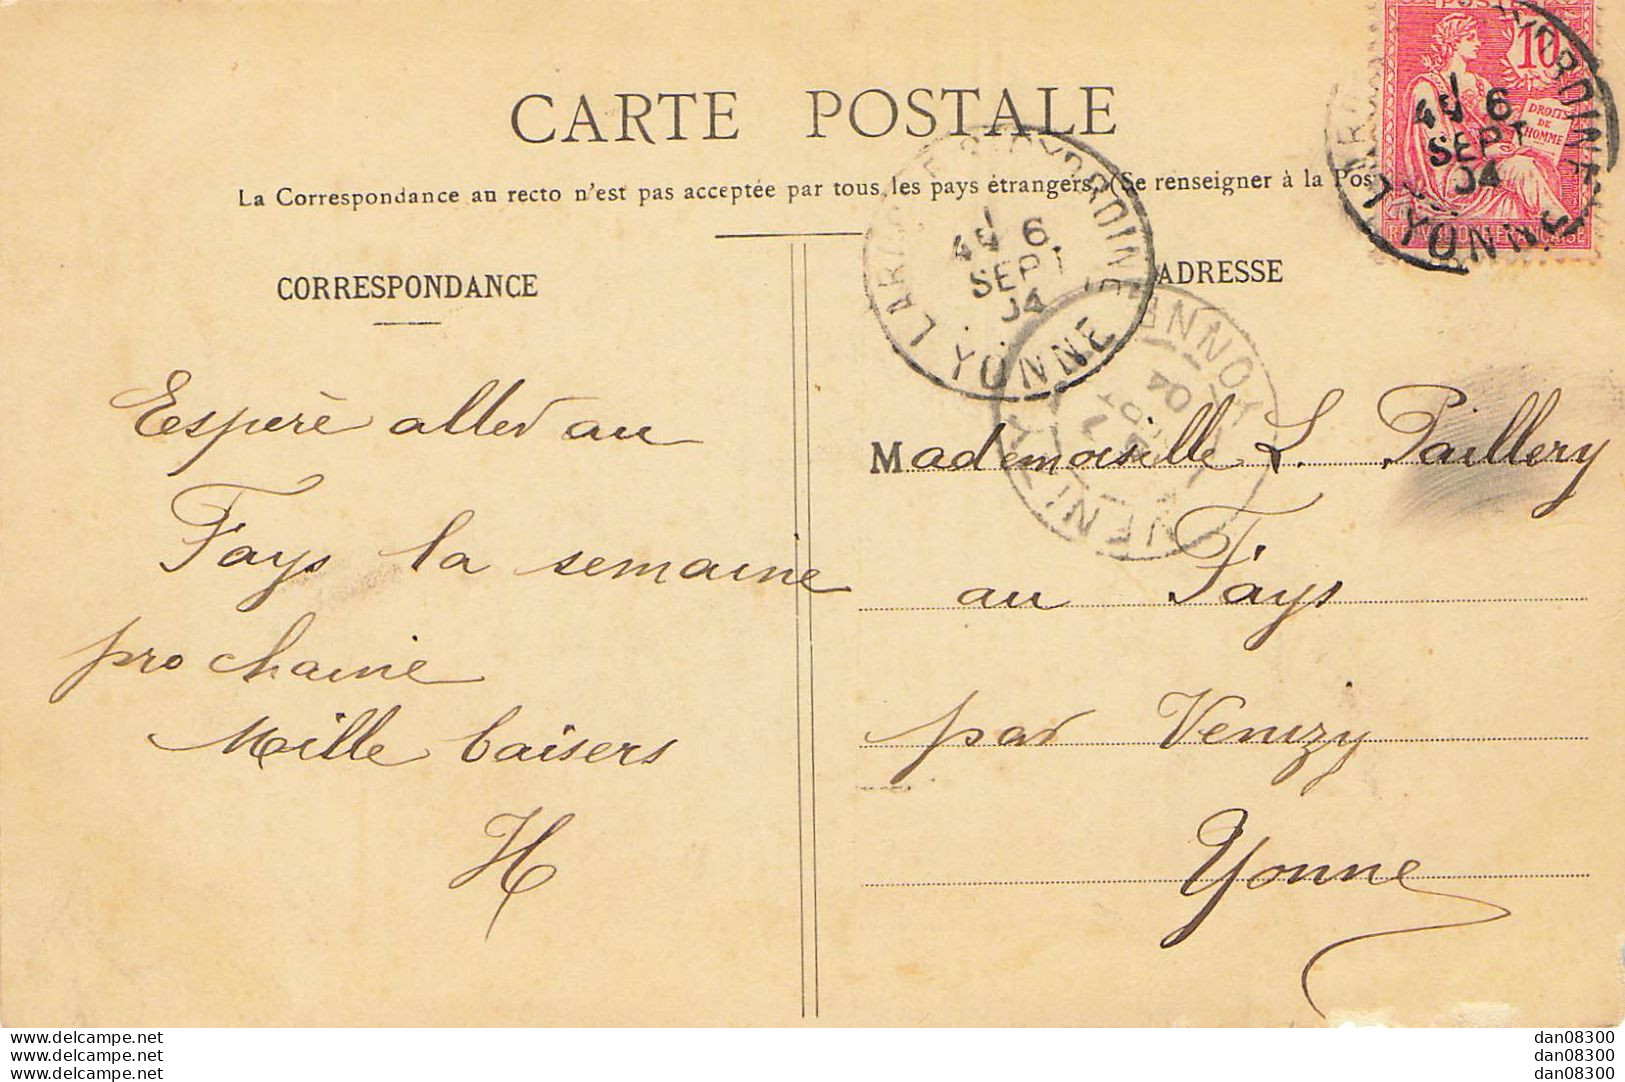 CARTE POSTALE
La Correspondance au recto n'est pas acceptée par tous les pays étrangers (Se renseigner à la Pos
CORRESPONDANCE
ADRESSE
Espère aller au
Fays la semaine
prochaine
Mille baisers
H
Mademoiselle L. Paillery
au Fays
par Venizy
Yonne
POSTES
10
DROITS
DE
L'HOMME
REPUBLIQUE FRANÇAISE
6
SEPT
04
YONNE
6
SEPT
04
YONNE
YONNE
04
www.delcampe.net
www.delcampe.net
www.delcampe.net
dan08300
dan08300
dan08300